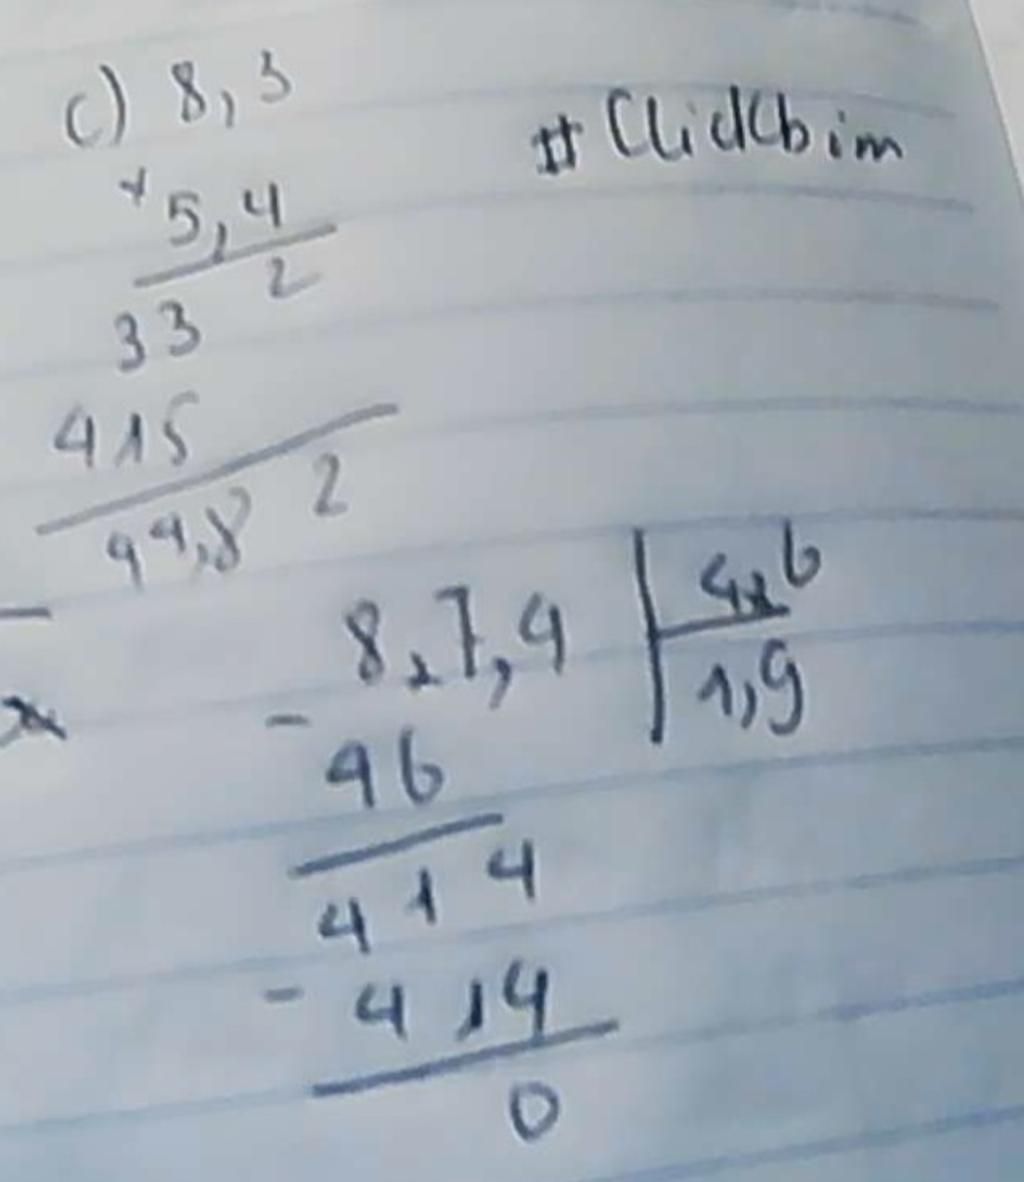 c) 8,3
#Clickbim
× 5,4
33 2
415
44,8 2
8,7,4 | 4,6
1,9
- 46
414
- 414
0